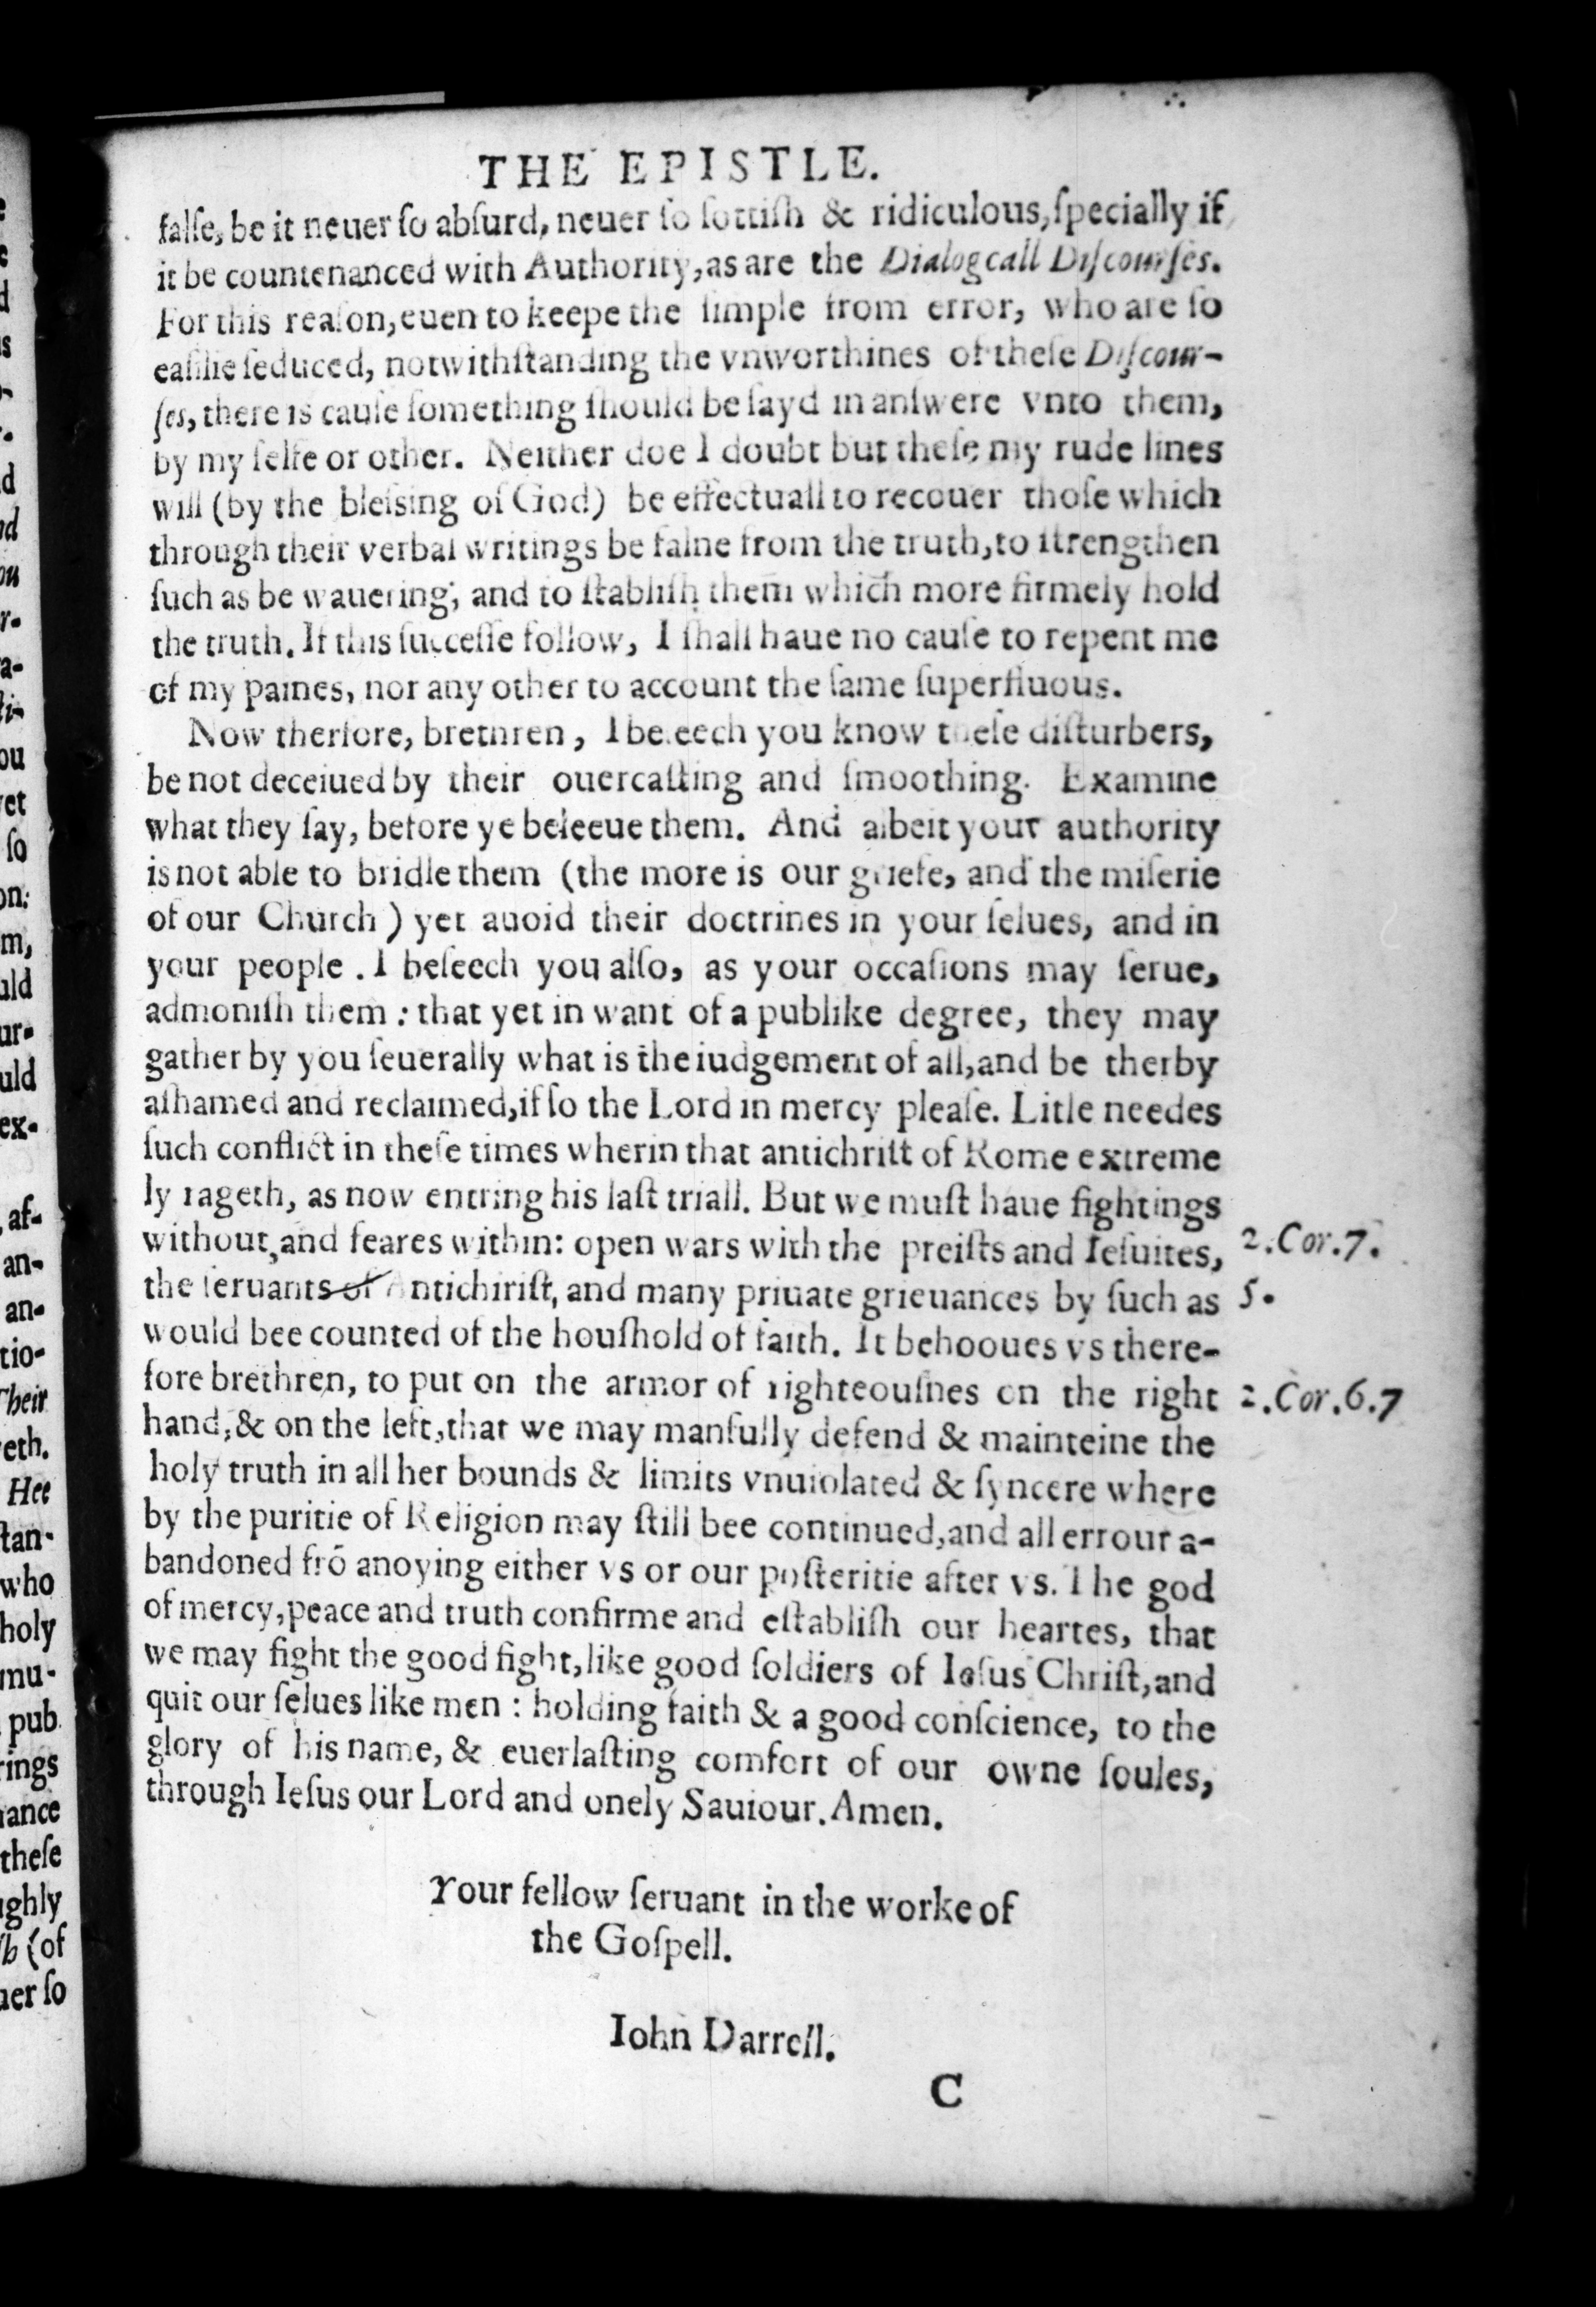 THE EPISTLE.
falſe, be it neuer ſo abſurd, neuer ſo ſottiſh & ridiculous, ſpecially if
it be countenanced with Authority, as are the Dialogcall Diſcourſes.
For this reaſon, euen to keepe the ſimple from error, who are ſo
eaſilie ſeduced, notwithſtanding the vnworthines of theſe Diſcour-
ſes, there is cauſe ſomething ſhould be ſayd in anſwere vnto them,
by my ſelfe or other. Neither doe I doubt but theſe my rude lines
will (by the bleſsing of God) be effectuall to recouer thoſe which
through their verbal writings be falne from the truth, to ſtrengthen
ſuch as be wauering; and to ſtabliſh them which more firmely hold
the truth. If this ſucceſſe follow, I ſhall haue no cauſe to repent me
of my paines, nor any other to account the ſame ſuperfluous.
Now therfore, brethren, I beſeech you know theſe diſturbers,
be not deceiued by their ouercaſting and ſmoothing. Examine
what they ſay, before ye beleeue them. And albeit your authority
is not able to bridle them (the more is our griefe, and the miſerie
of our Church) yet auoid their doctrines in your ſelues, and in
your people. I beſeech you alſo, as your occaſions may ſerue,
admoniſh them: that yet in want of a publike degree, they may
gather by you ſeuerally what is the iudgement of all, and be therby
aſhamed and reclaimed, if ſo the Lord in mercy pleaſe. Litle needes
ſuch conflict in theſe times wherin that antichriſt of Rome extreme
ly rageth, as now entring his laſt triall. But we muſt haue fightings
without, and feares within: open wars with the preiſts and Ieſuites,
the ſeruants of Antichiriſt, and many priuate grieuances by ſuch as
would bee counted of the houſhold of faith. It behooues vs there-
fore brethren, to put on the armor of righteouſnes on the right
hand, & on the left, that we may manfully defend & mainteine the
holy truth in all her bounds & limits vnuiolated & ſyncere where
by the puritie of Religion may ſtill bee continued, and all errour a-
bandoned frō anoying either vs or our poſteritie after vs. The god
of mercy, peace and truth confirme and eſtabliſh our heartes, that
we may fight the good fight, like good ſoldiers of Ieſus Chriſt, and
quit our ſelues like men: holding faith & a good conſcience, to the
glory of his name, & euerlaſting comfort of our owne ſoules,
through Ieſus our Lord and onely Sauiour. Amen.
2.Cor.7.
5.
2.Cor.6.7
Your fellow ſeruant in the worke of
the Goſpell.
Iohn Darrell.
C